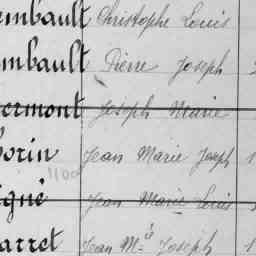 embault Christophe Louis
mbault Pierre Joseph
ermont Joseph Marie
orin Jean Marie Joseph 1
igné Jean Marie Louis
arret Jean Mie Joseph 1